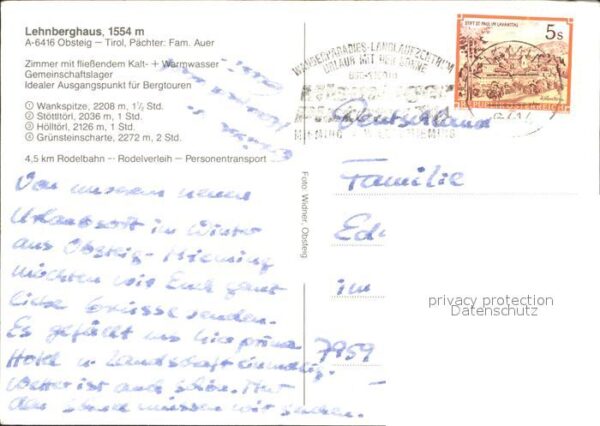 Lehnberghaus, 1554 m
A-6416 Obsteig — Tirol, Pächter: Fam. Auer
Zimmer mit fließendem Kalt- + Warmwasser
Gemeinschaftslager
Idealer Ausgangspunkt für Bergtouren
① Wankspitze, 2208 m, 1½ Std.
② Stöttltörl, 2036 m, 1 Std.
③ Hölltörl, 2126 m, 1 Std.
④ Grünsteinscharte, 2272 m, 2 Std.
4,5 km Rodelbahn — Rodelverleih — Personentransport
Von unserem neuen
Urlaubsort im Winter
aus Obsteig - Mieming
möchten wir Euch ganz
liebe Grüsse senden.
Es gefällt uns hier prima
Hotel u. Landschaft einmalig.
Wetter ist auch schön. Nur
den Schnee müssen wir suchen.
Foto Widner, Obsteig
STIFT ST. PAUL IM LAVANTTAL
5s
REPUBLIK ÖSTERREICH
WANDERPARADIES-LANGLAUFZENTRUM
URLAUB MIT DER SONNE
MIEMING
Deutschland
Familie
Ed-
im
7959
privacy protection
Datenschutz